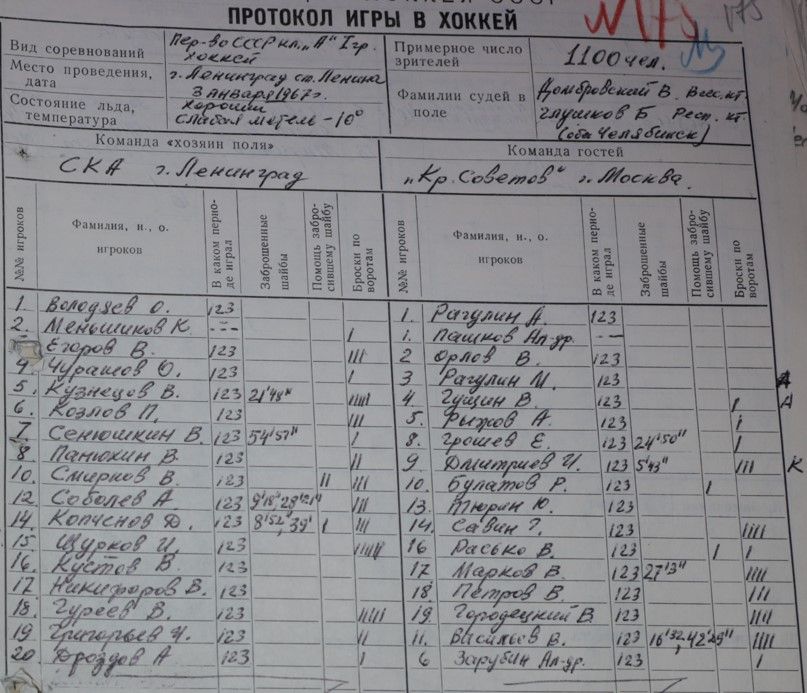 ПРОТОКОЛ ИГРЫ В ХОККЕЙ
N 175
175
Вид соревнований Пер-во СССР кл. „А" I гр. хоккей
Место проведения, дата г. Ленинград ст. Ленина 3 января 1967 г.
Состояние льда, температура хороший слабая метель -10°
Примерное число зрителей 1100 чел.
Фамилии судей в поле Домбровский В. Всес. кт.
Глушков Б Респ. кт.
(оба Челябинск)
Команда «хозяин поля» Команда гостей
СКА г. Ленинград „Кр. Советов" г. Москва.
№№ игроков Фамилия, и., о. игроков В каком периоде играл Заброшенные шайбы Помощь забросившему шайбу Броски по воротам №№ игроков Фамилия, и., о. игроков В каком периоде играл Заброшенные шайбы Помощь забросившему шайбу Броски по воротам
1. Володяев О. 123 1. Рагулин А. 123
2. Меньшиков К. --- 1. Пашков Ал-др. --
Егоров В. 123 III 2 Орлов В. 123
4. Чурашов О. 123 I 3 Рагулин М. 123 А
5. Кузнецов В. 123 21'48" IIIII 4 Гущин В. 123 I А
6. Козлов П. 123 III 5. Рыжов А. 123 I
7. Сенюшкин В. 123 54'57" I 8. Грошев Е. 123 24'50" I
8 Панюхин В. 123 II 9. Дмитриев И. 123 5'43" III К
10. Смирнов В. 123 II III 10. Булатов Р. 123 I
12. Соболев А 123 III 13. Тюрин Ю. 123
14. Копченов Д. 123 8'52", 39' I III 14. Савин Г. 123 IIII
15. Щурков И. 123 16 Расько В. 123 I I
16. Кустов В. 123 17. Марков В. 123 IIII
17 Никифоров В. 123 18. Петров В. 123 III
18. Гуреев В. 123 IIIII 19. Городецкий В 123 IIII
19. Григорьев И. 123 II 11. Васильев В. 123 16'32", 42'29" IIII
20. Дроздов А 123 I 6 Зарубин Ал-др. 123 III